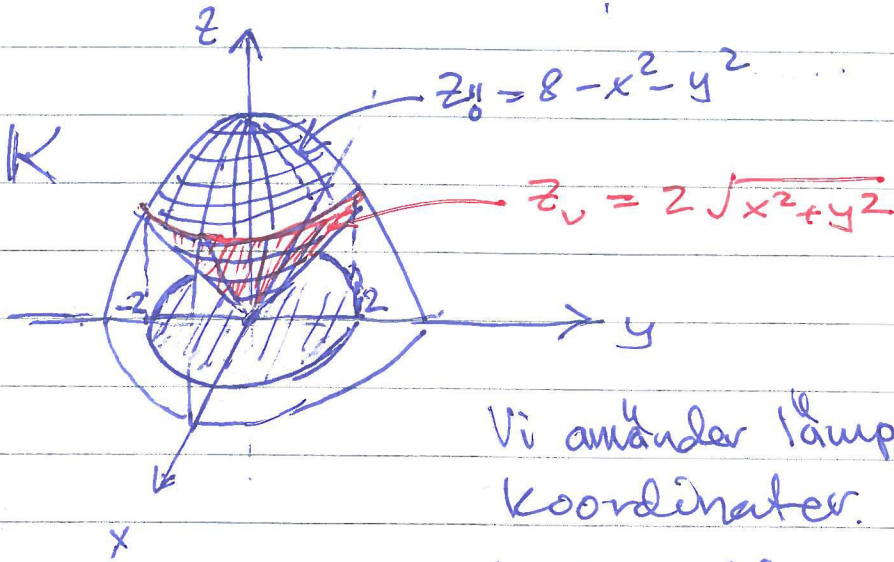 z
z_ö = 8 - x² - y²
K
z_v = 2 √(x²+y²)
-2 2
y
Vi använder lämp
koordinater.
x